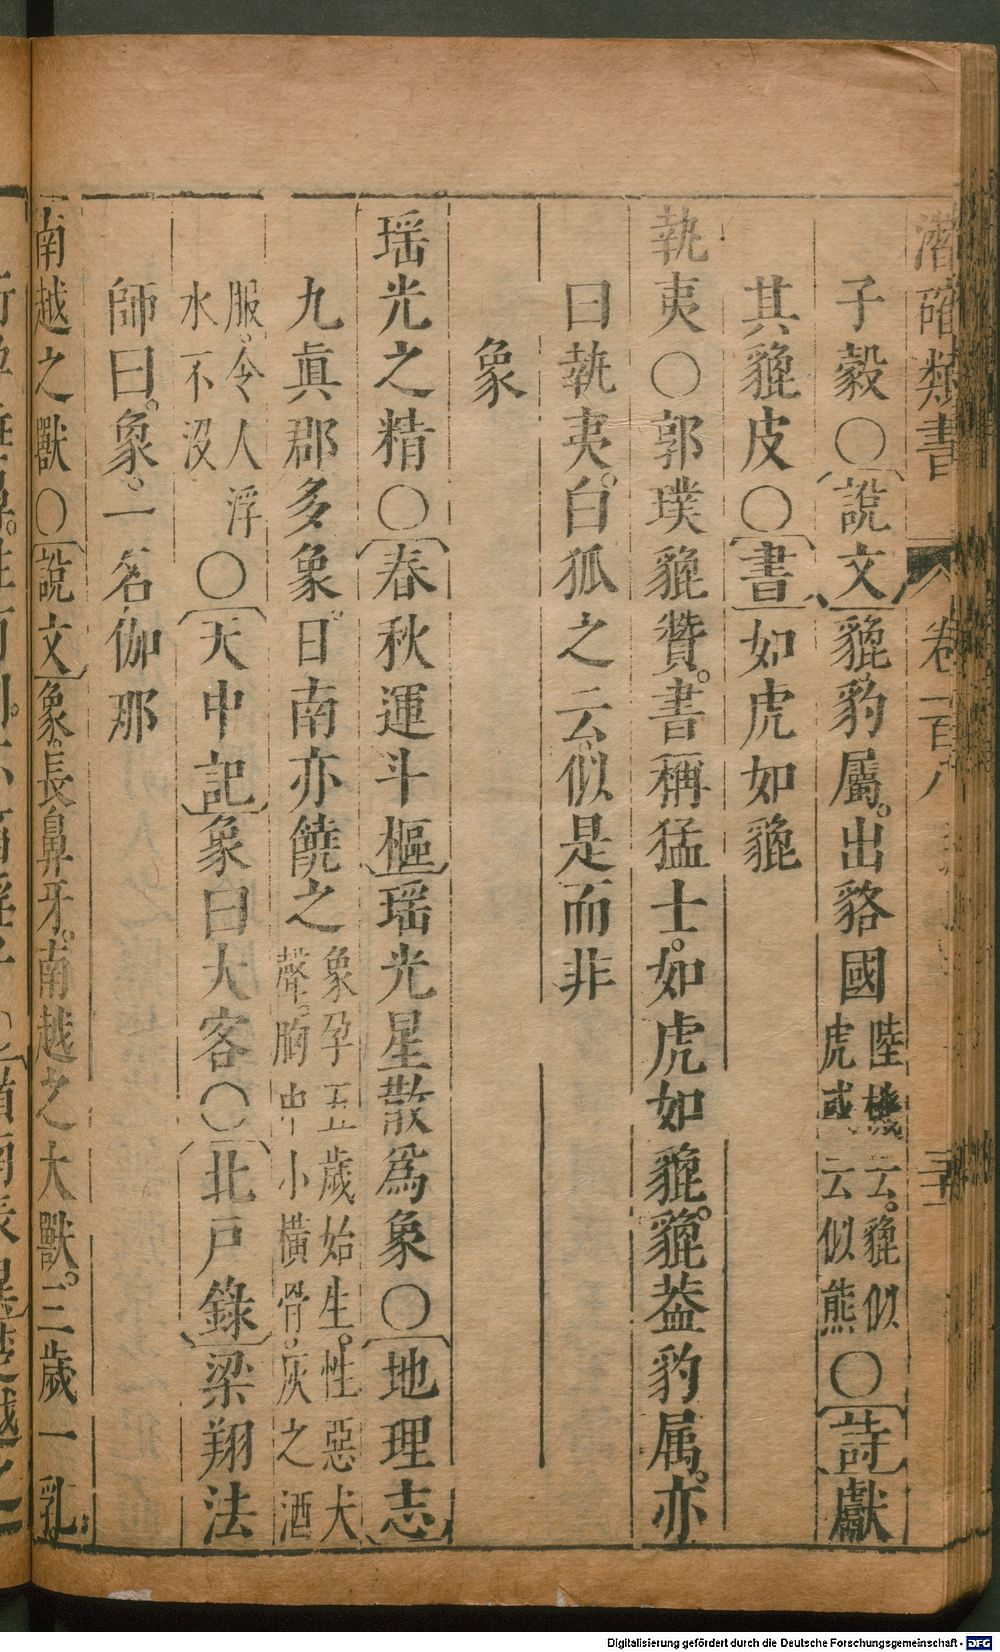 潛確類書 卷一百八
子縠○說文貔豹屬。出貉國陸機云。貔似
虎或云似熊○詩獻
其貔皮○書如虎如貔
執夷○郭璞貔贊。書稱猛士。如虎如貔。貔葢豹属。亦
曰執夷。白狐之云。似是而非
象
瑶光之精○春秋運斗樞瑶光星散為象○地理志
九眞郡多象。日南亦饒之象孕五歲始生。性惡犬
聲。胸中小橫骨。灰之酒
服。令人浮
水不沒○天中記象曰大客○北戸錄梁翔法
師曰。象。一名伽那
南越之獸○說文象。長鼻牙。南越之大獸。三歲一乳
Digitalisierung gefördert durch die Deutsche Forschungsgemeinschaft - DFG